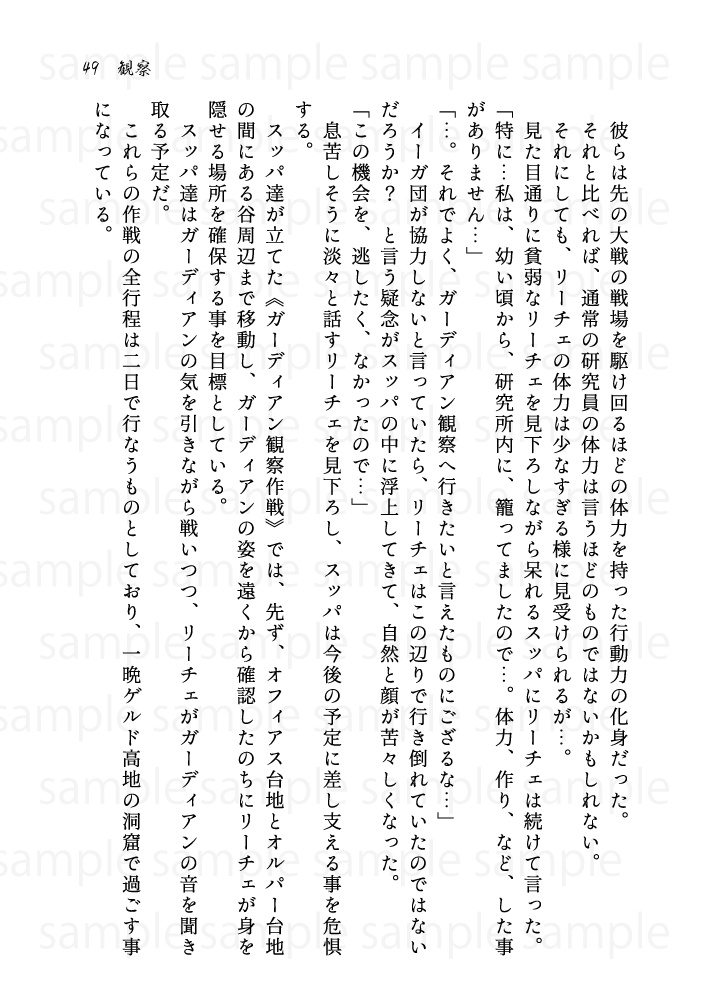 49 観察
彼らは先の大戦の戦場を駆け回るほどの体力を持った行動力の化身だった。
それと比べれば、通常の研究員の体力は言うほどのものではないかもしれない。
それにしても、リーチェの体力は少なすぎる様に見受けられるが…。
見た目通りに貧弱なリーチェを見下ろしながら呆れるスッパにリーチェは続けて言った。
「特に…私は、幼い頃から、研究所内に、籠ってましたので…。体力、作り、など、した事
がありません…」
「…。それでよく、ガーディアン観察へ行きたいと言えたものにござるな…」
イーガ団が協力しないと言っていたら、リーチェはこの辺りで行き倒れていたのではない
だろうか？　と言う疑念がスッパの中に浮上してきて、自然と顔が苦々しくなった。
「この機会を、逃したく、なかったので…」
息苦しそうに淡々と話すリーチェを見下ろし、スッパは今後の予定に差し支える事を危惧
する。
スッパ達が立てた《ガーディアン観察作戦》では、先ず、オフィアス台地とオルパー台地
の間にある谷周辺まで移動し、ガーディアンの姿を遠くから確認したのちにリーチェが身を
隠せる場所を確保する事を目標としている。
スッパ達はガーディアンの気を引きながら戦いつつ、リーチェがガーディアンの音を聞き
取る予定だ。
これらの作戦の全行程は二日で行なうものとしており、一晩ゲルド高地の洞窟で過ごす事
になっている。
sample sample sample sample sample